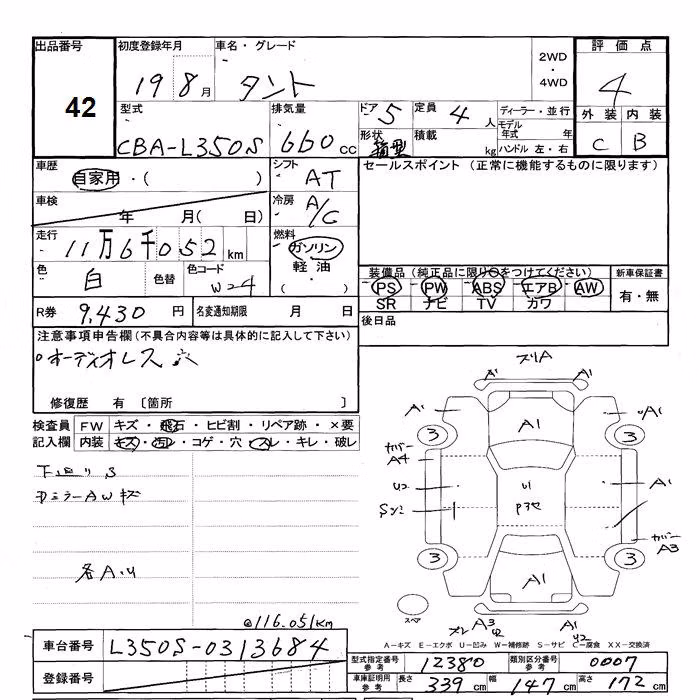 出品番号 初度登録年月 車名・グレード 2WD・4WD 評価点
42 19 8月 タント 4
型式 排気量 ドア 5 定員 4人 ディーラー・並行 外装 内装
CBA-L350S 660cc 形状 箱型 積載 kg モデル年式 年 C B
ハンドル 左・右
車歴 自家用・( ) シフト AT セールスポイント (正常に機能するものに限ります)
車検 年 月( 日) 冷房 A/C
走行 11万6千052km 燃料 ガソリン
軽油・( )
色 白 色替 色コード W24 装備品(純正品に限り○をつけてください) 新車保証書
PS PW ABS エアB AW 有・無
SR ナビ TV カワ
R券 9,430円 名変通知期限 月 日 後日品
注意事項申告欄(不具合内容等は具体的に記入して下さい)
オーディオレス 穴
修復歴 有 〔箇所 〕
検査員記入欄 FW キズ・飛石・ヒビ割・リペア跡・×要
内装 キズ・汚レ・コゲ・穴・スレ・キレ・破レ
下廻りS
ミラーAWキズ
各A.U
@116.051km
ズリA
A1 A1
A1 A1 A1
3 3
カバーA4
U2 U1 A1
Sケシ P3セ
カバーA3
3 3
A1
スペア
ズレ A3 A1
U2
A-キズ E-エクボ U-凹み W-補修跡 S-サビ C-腐食 XX-交換済
車台番号 L350S-0313684
登録番号
型式指定番号 参考 12380 類別区分番号 参考 0007
車庫証明用 参考 長さ 339cm 幅 147cm 高さ 172cm